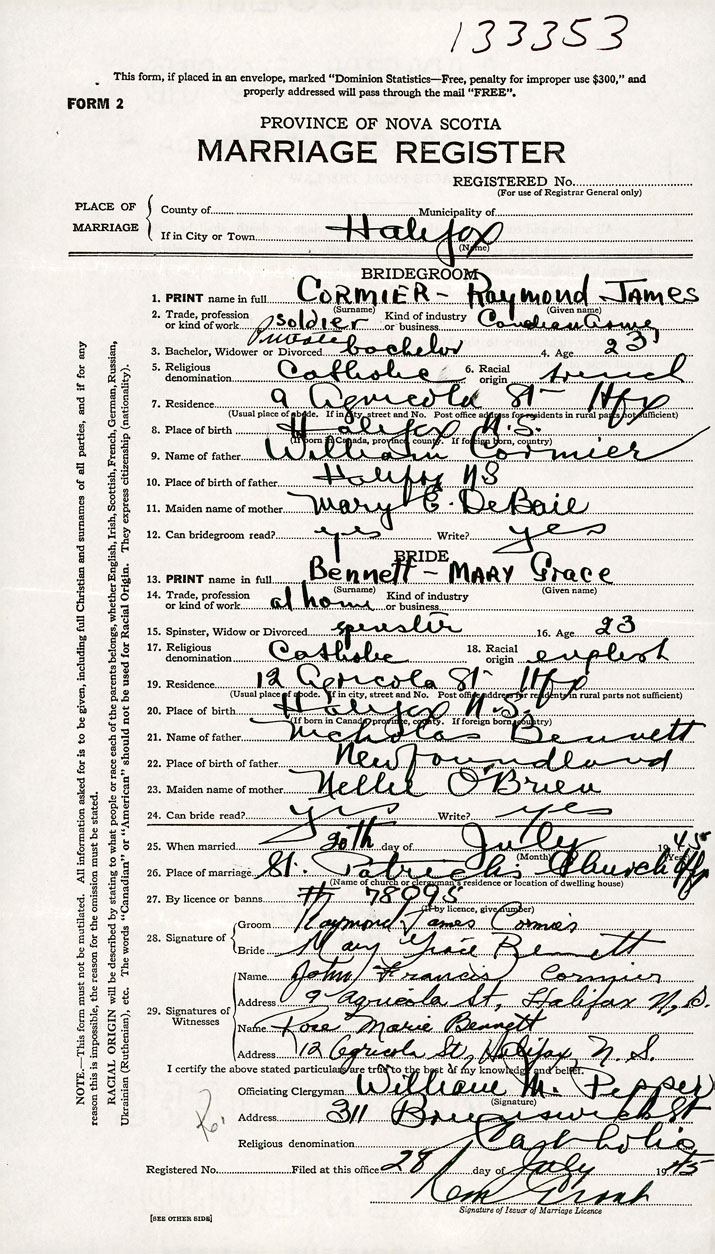 133353
This form, if placed in an envelope, marked "Dominion Statistics—Free, penalty for improper use $300," and
properly addressed will pass through the mail "FREE".
FORM 2
PROVINCE OF NOVA SCOTIA
MARRIAGE REGISTER
REGISTERED No.
(For use of Registrar General only)
PLACE OF MARRIAGE
County of Municipality of
If in City or Town Halifax
(Name)
BRIDEGROOM
1. PRINT name in full CORMIER - Raymond JAMES
(Surname) (Given name)
2. Trade, profession or kind of work soldier Kind of industry or business Canadian Army
private
3. Bachelor, Widower or Divorced bachelor 4. Age 23
5. Religious denomination Catholic 6. Racial origin french
7. Residence 9 Agricola St - Hfx
(Usual place of abode. If in city, street and No. Post office address for residents in rural parts not sufficient)
8. Place of birth Halifax N.S.
(If born in Canada, province, county. If foreign born, country)
9. Name of father William Cormier
10. Place of birth of father Halifax NS
11. Maiden name of mother Mary E. DeBaie
12. Can bridegroom read? yes Write? yes
BRIDE
13. PRINT name in full Bennett - MARY Grace
(Surname) (Given name)
14. Trade, profession or kind of work at home Kind of industry or business
15. Spinster, Widow or Divorced spinster 16. Age 23
17. Religious denomination Catholic 18. Racial origin english
19. Residence 12 Agricola St - Hfx
(Usual place of abode. If in city, street and No. Post office address for residents in rural parts not sufficient)
20. Place of birth Halifax N.S.
(If born in Canada, province, county. If foreign born, country)
21. Name of father Nicholas Bennett
22. Place of birth of father Newfoundland
23. Maiden name of mother Nellie O'Brien
24. Can bride read? yes Write? yes
25. When married 20th day of July 1945
(Month) (Year)
26. Place of marriage St. Patrick's Church Hfx
(Name of church or clergyman's residence or location of dwelling house)
27. By licence or banns # 78095
(If by licence, give number)
28. Signature of
Groom Raymond James Cormier
Bride Mary Grace Bennett
29. Signatures of Witnesses
Name John Francis Cormier
Address 9 Agricola St, Halifax N.S.
Name Rose Marie Bennett
Address 12 Agricola St, Halifax, N.S.
I certify the above stated particulars are true to the best of my knowledge and belief.
Officiating Clergyman William M. Pepper
(Signature)
Address 311 Brunswick St
Religious denomination Catholic
Registered No. Filed at this office 28 day of July 1945
Signature of Issuer of Marriage Licence
[SEE OTHER SIDE]
NOTE.—This form must not be mutilated. All information asked for is to be given, including full Christian and surnames of all parties, and if for any
reason this is impossible, the reason for the omission must be stated.
RACIAL ORIGIN will be described by stating to what people or race each of the parents belongs, whether English, Irish, Scottish, French, German, Russian,
Ukrainian (Ruthenian), etc. The words "Canadian" or "American" should not be used for Racial Origin. They express citizenship (nationality).